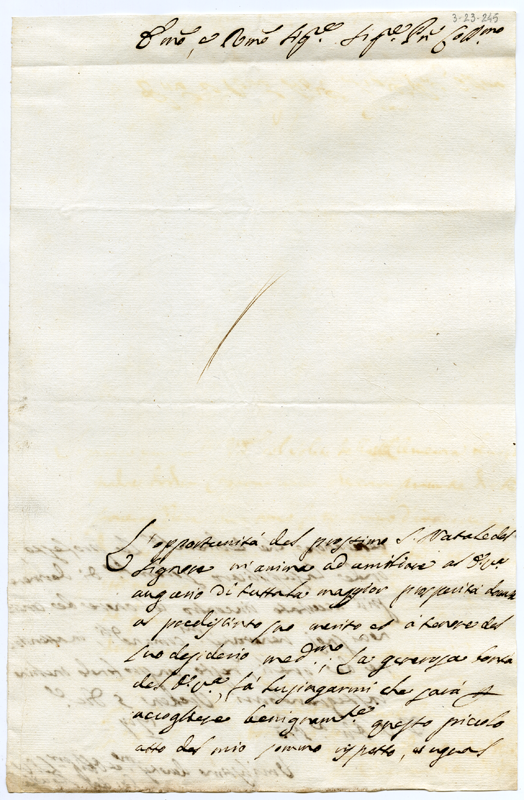 3-23-245
Emo, e Rmo Sigre Sigre Pne Colmo
L'opportunità del prossimo S. Natale del
Signore m'anima ad umiliare al
augurio di tutta la maggior prosperità
al preclarissimo suo merito et a tenore del
suo desiderio medmo: La generosa bontà
dell' fà lusingarmi che sarà p
accogliere benignamte questo piccolo
atto del mio sommo rispetto, e